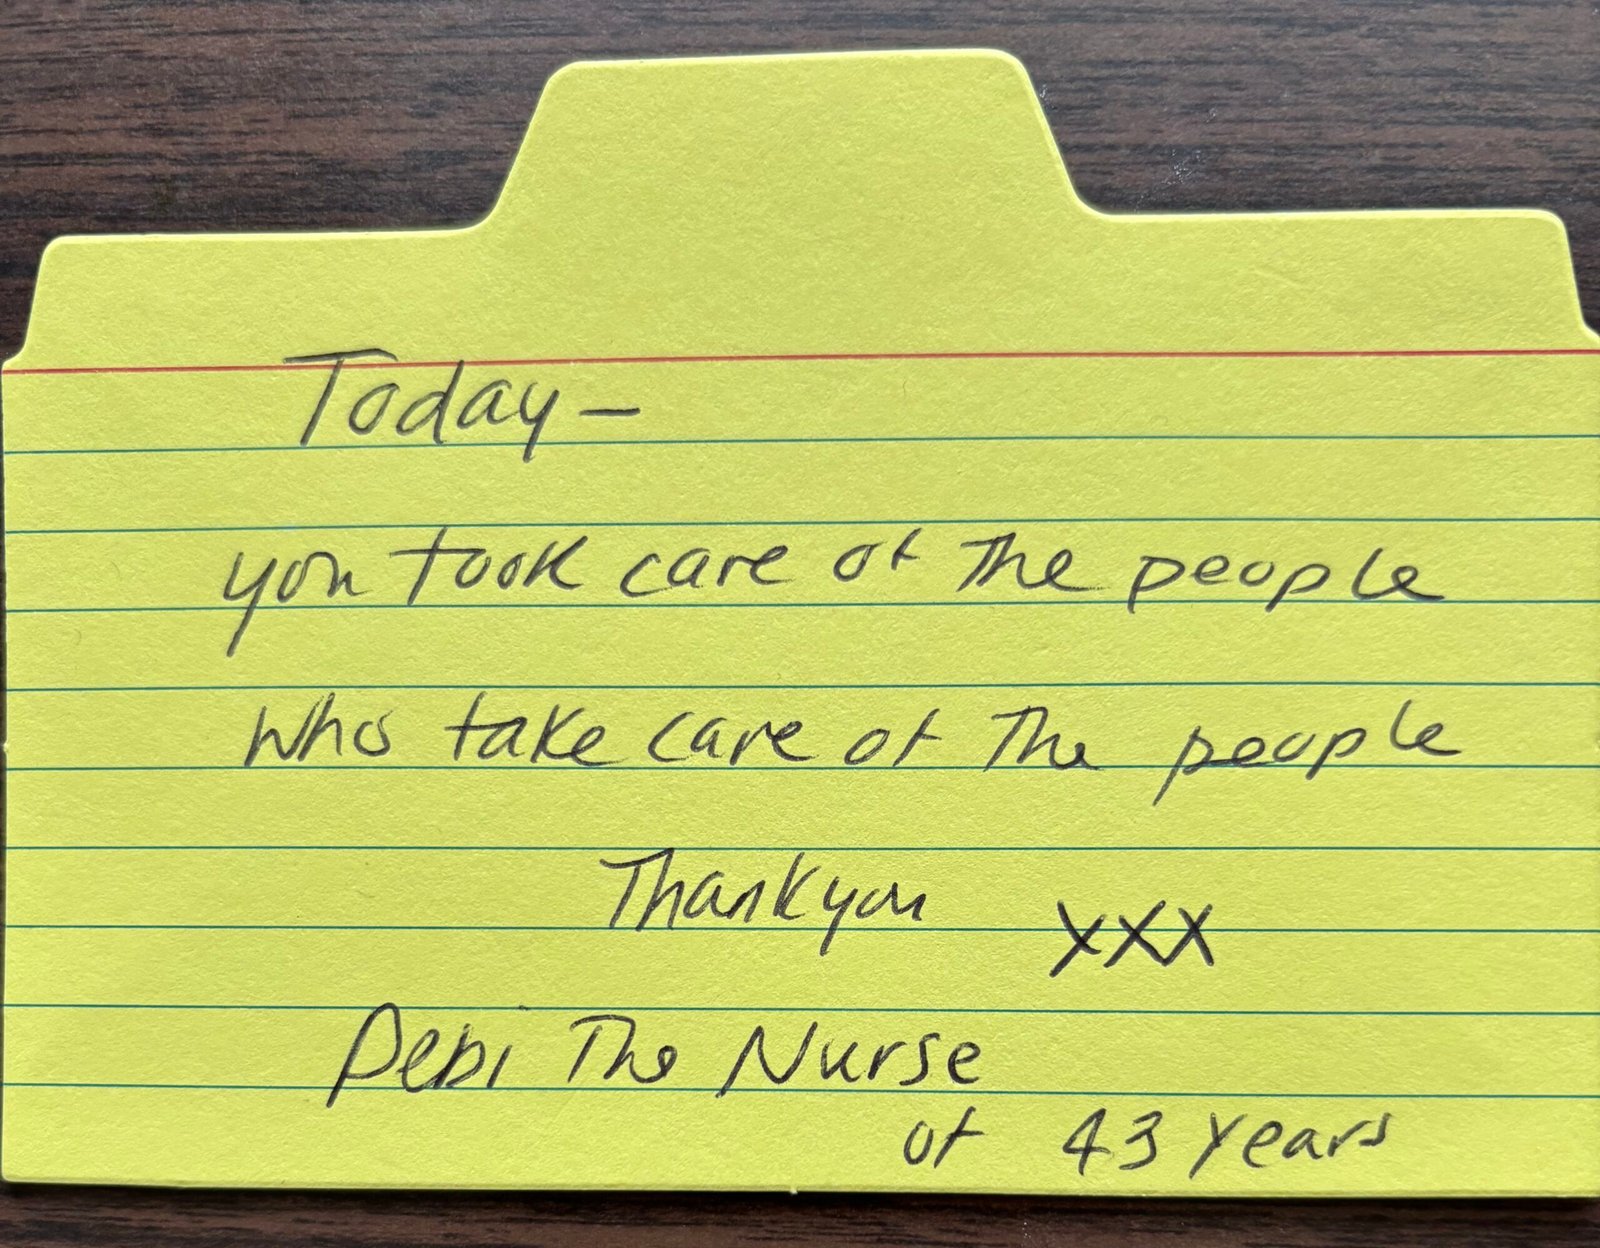 Today –
you took care of the people
who take care of the people
Thankyou xxx
Debi The Nurse
of 43 years